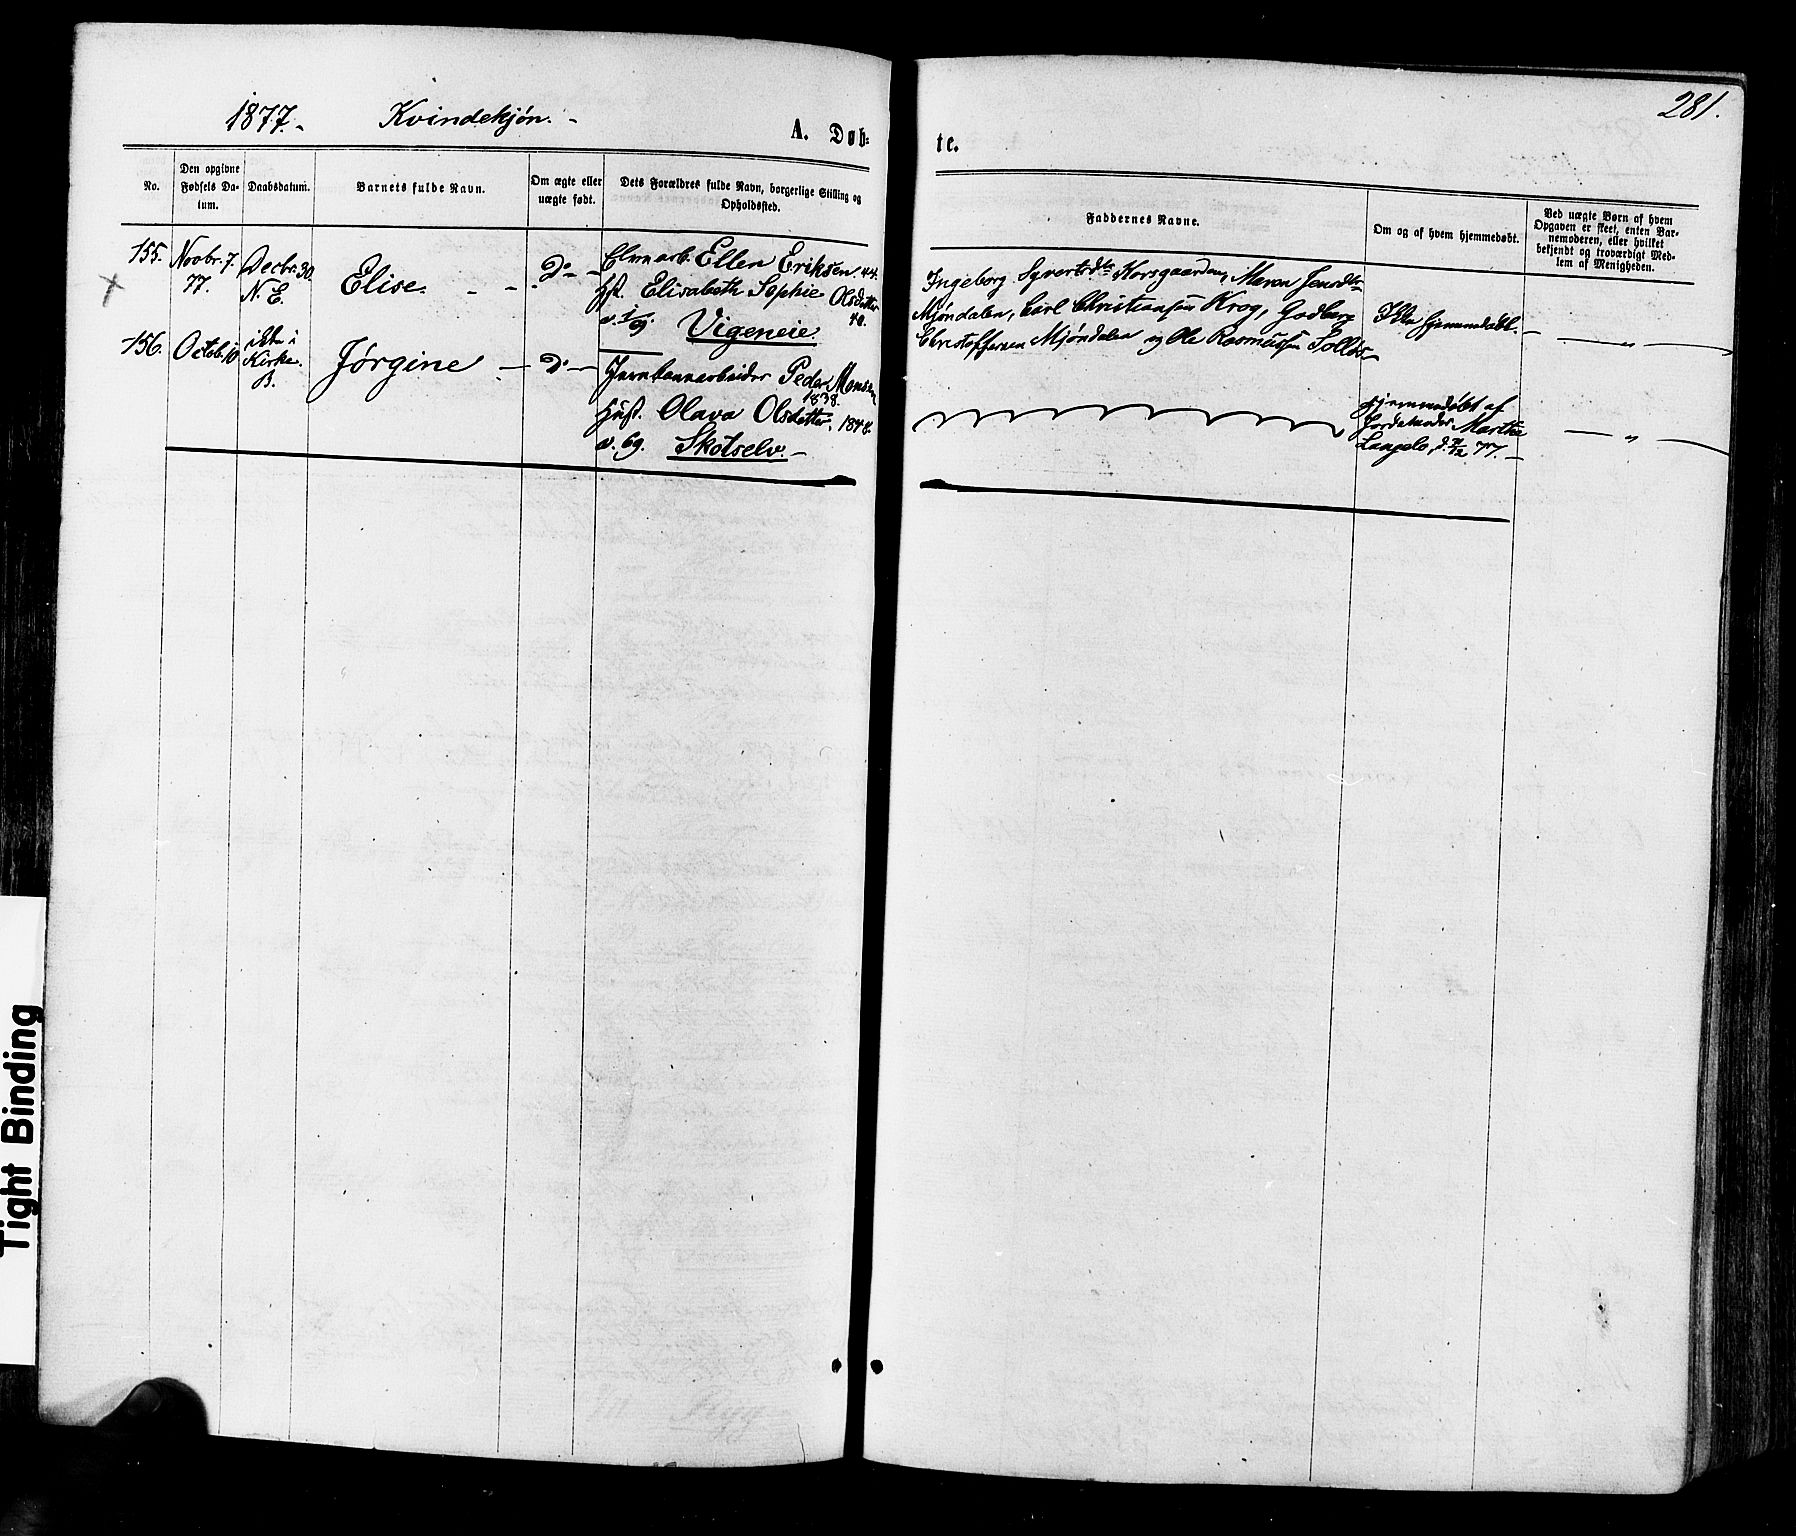 1877. Kvindekjøn.
281.
A. Døb-
te.
No.
Den opgivne Fødsels Da-tum.
Daabsdatum.
Barnets fulde Navn.
Om ægte eller uægte født.
Dets Forældres fulde Navn, borgerlige Stilling og Opholdssted.
Faddernes Navne.
Om og af hvem hjemmedøbt.
Ved uægte Børn af hvem Opgaven er skeet, enten Bar-nemoderen, eller hvilket bekjendt og troværdigt Med-lem af Menigheden.
155.
Novbr. 7.
77.
Decbr. 30
N. E.
Elise.
Do
Elvearb. Ellen Eriksen 44.
Hst. Elisabeth Sophie Olsdatter
40.
v. 1/9. Vigeneie.
Ingeborg Syvertsdtr Korsgaarden, Maren Jensdtr
Mjøndalen, Carl Christiansen Krog, Gudberg
Christoffersen Mjøndalen og Ole Rasmussen Solløs
Ikke hjemmedøbt.
"
156.
Octob. 10
ikke i
Kirke.
B.
Jørgine
Do
Jernbanearbeider Peder Monsen
1838.
Hust. Olava Olsdatter, 1848.
v. 69. Skotselv.
Hjemmedøbt af
Jordemoder Marthe
Langelo, d. 7/12 77.
"
Tight Binding